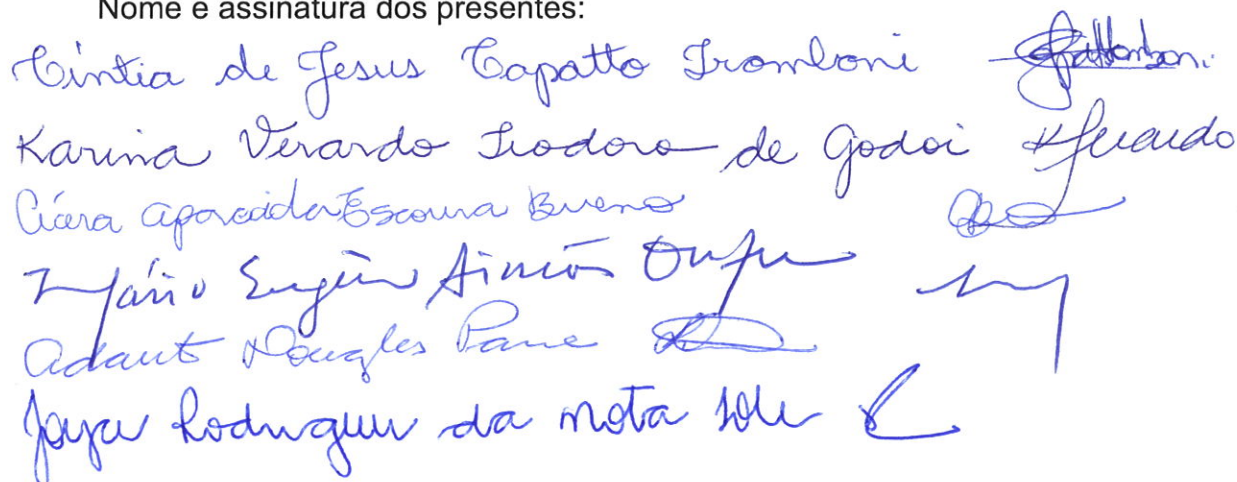 Nome e assinatura dos presentes:
Cíntia de Jesus Capatto Tromboni
Karina Verardo Teodoro de Godoi KVerardo
Cícera Aparecida Escoura Bueno
Mário Eugênio Simões Onofre
Adauto Douglas Parre
Rodrigues da Mota